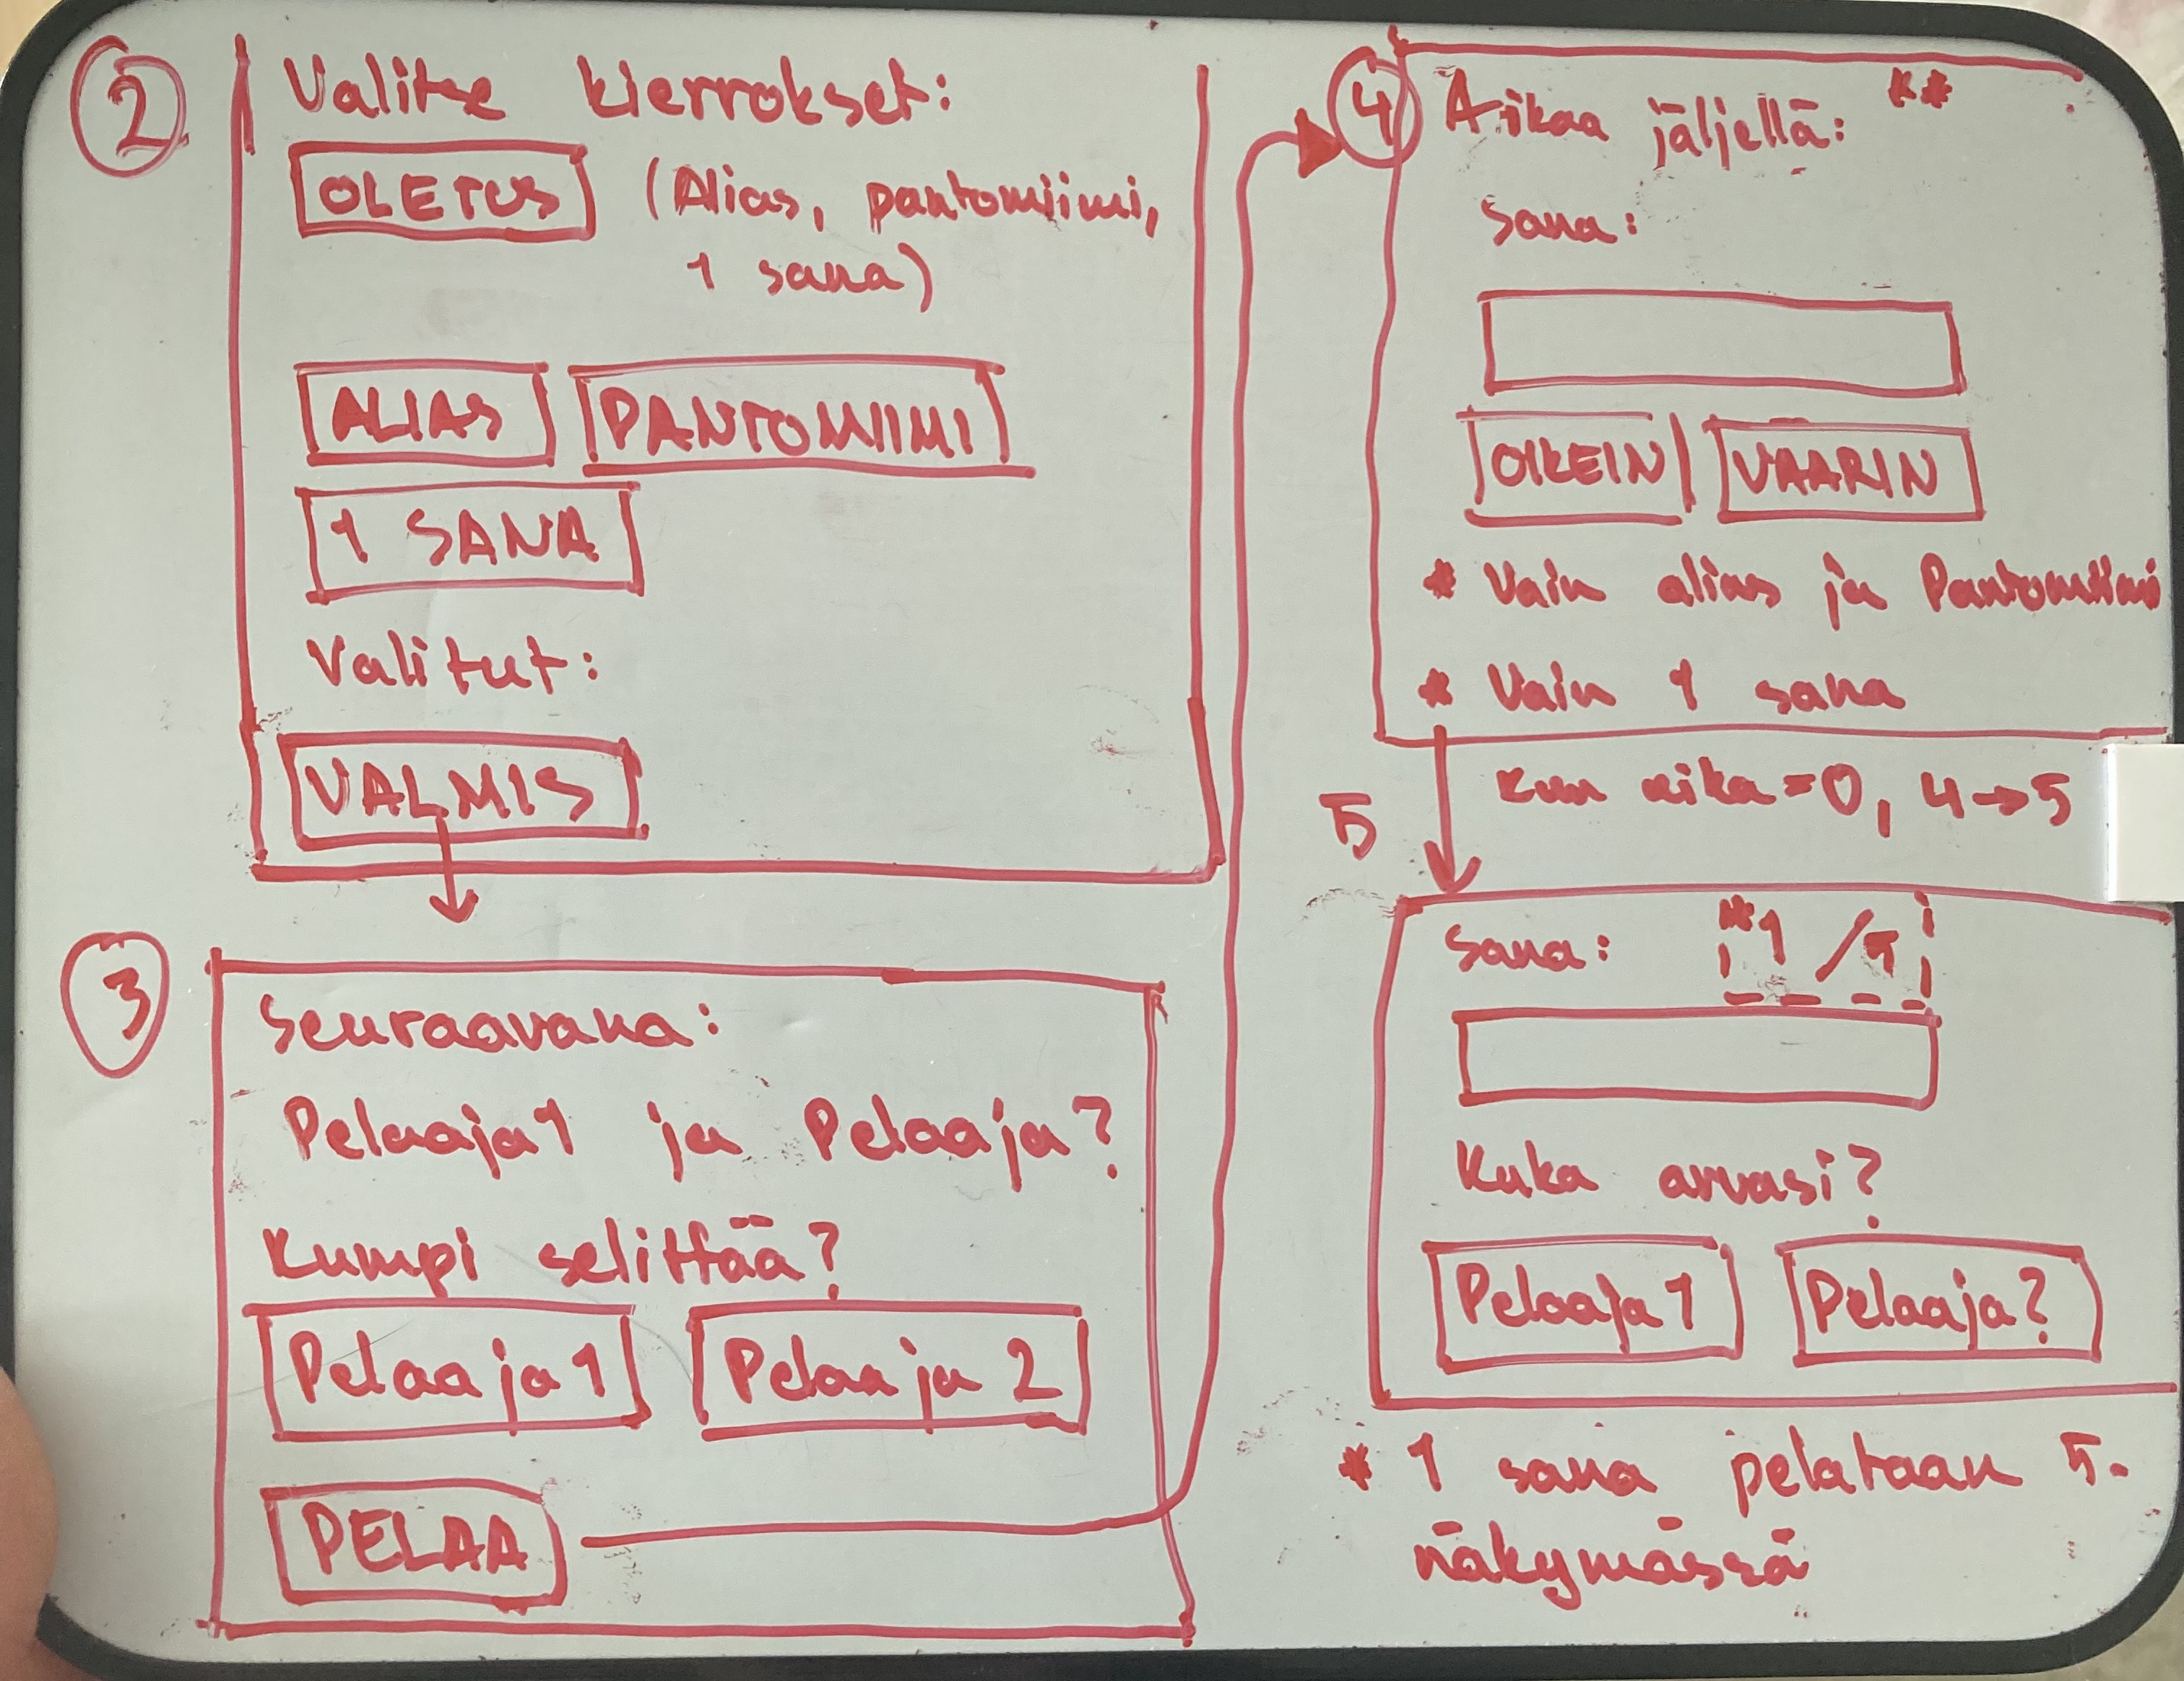 2
Valitse kierrokset:
OLETUS (Alias, pantomiimi,
1 sana)
ALIAS PANTOMIIMI
1 SANA
Valitut:
VALMIS
3
Seuraavana:
Pelaaja1 ja Pelaaja?
Kumpi selittää?
Pelaaja1 Pelaaja 2
PELAA
4 Aikaa jäljellä: **
Sana:
OIKEIN VÄÄRIN
* Vain alias ja Pantomiimi
* Vain 1 sana
Kun aika=0, 4→5
5
Sana: *1/5
Kuka arvasi?
Pelaaja1 Pelaaja?
* 1 sana pelataan 5.
näkymässä